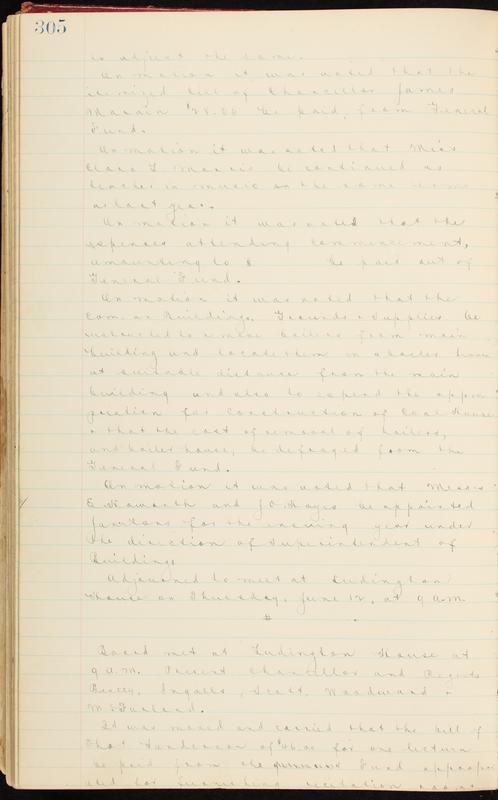 305
to adjust the same.
On motion it was voted that the
itemized bill of Chancellor James
Marvin $78.00 be paid from General
Fund.
On motion it was voted that Miss
Clara be continued as
teacher in music on the same terms
as last year.
On motion it was voted that the
expenses attending Commencement,
amounting to $ be paid out of
General Fund.
On motion it was voted that the
Com. on Buildings, Grounds & Supplies be
instructed to remove boilers from main
building and locate them in a boiler house
at suitable distance from the main
building and also to expend the appro
priation for construction of Coal House
& that the cost of removal of boilers,
and boiler house, be defrayed from the
General Fund.
On motion it was voted that Messrs
E. and J.O. Hayes be appointed
janitors for the ensuing year under
the direction of Superintendent of
Buildings
Adjourned to meet at Ludington
House on Thursday, June 12, at 9 a.m.
Board met at Ludington House at
9 A.M. Present Chancellor and Regents
Beatty, Ingalls, Scott, Woodward &
McFarland.
It was moved and carried that the bill of
of for one lecture
be paid from the Fund appropri
ated for furnishing recitation rooms